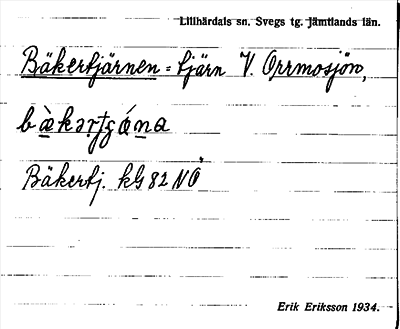 Lillhärdals sn. Svegs tg. Jämtlands län.
Bäkertjärnen = tjärn V. Orrmosjön,
bɑ̀kəṛtʃɑ́na
Bäkertj. kG 82 NÖ
Erik Eriksson 1934.